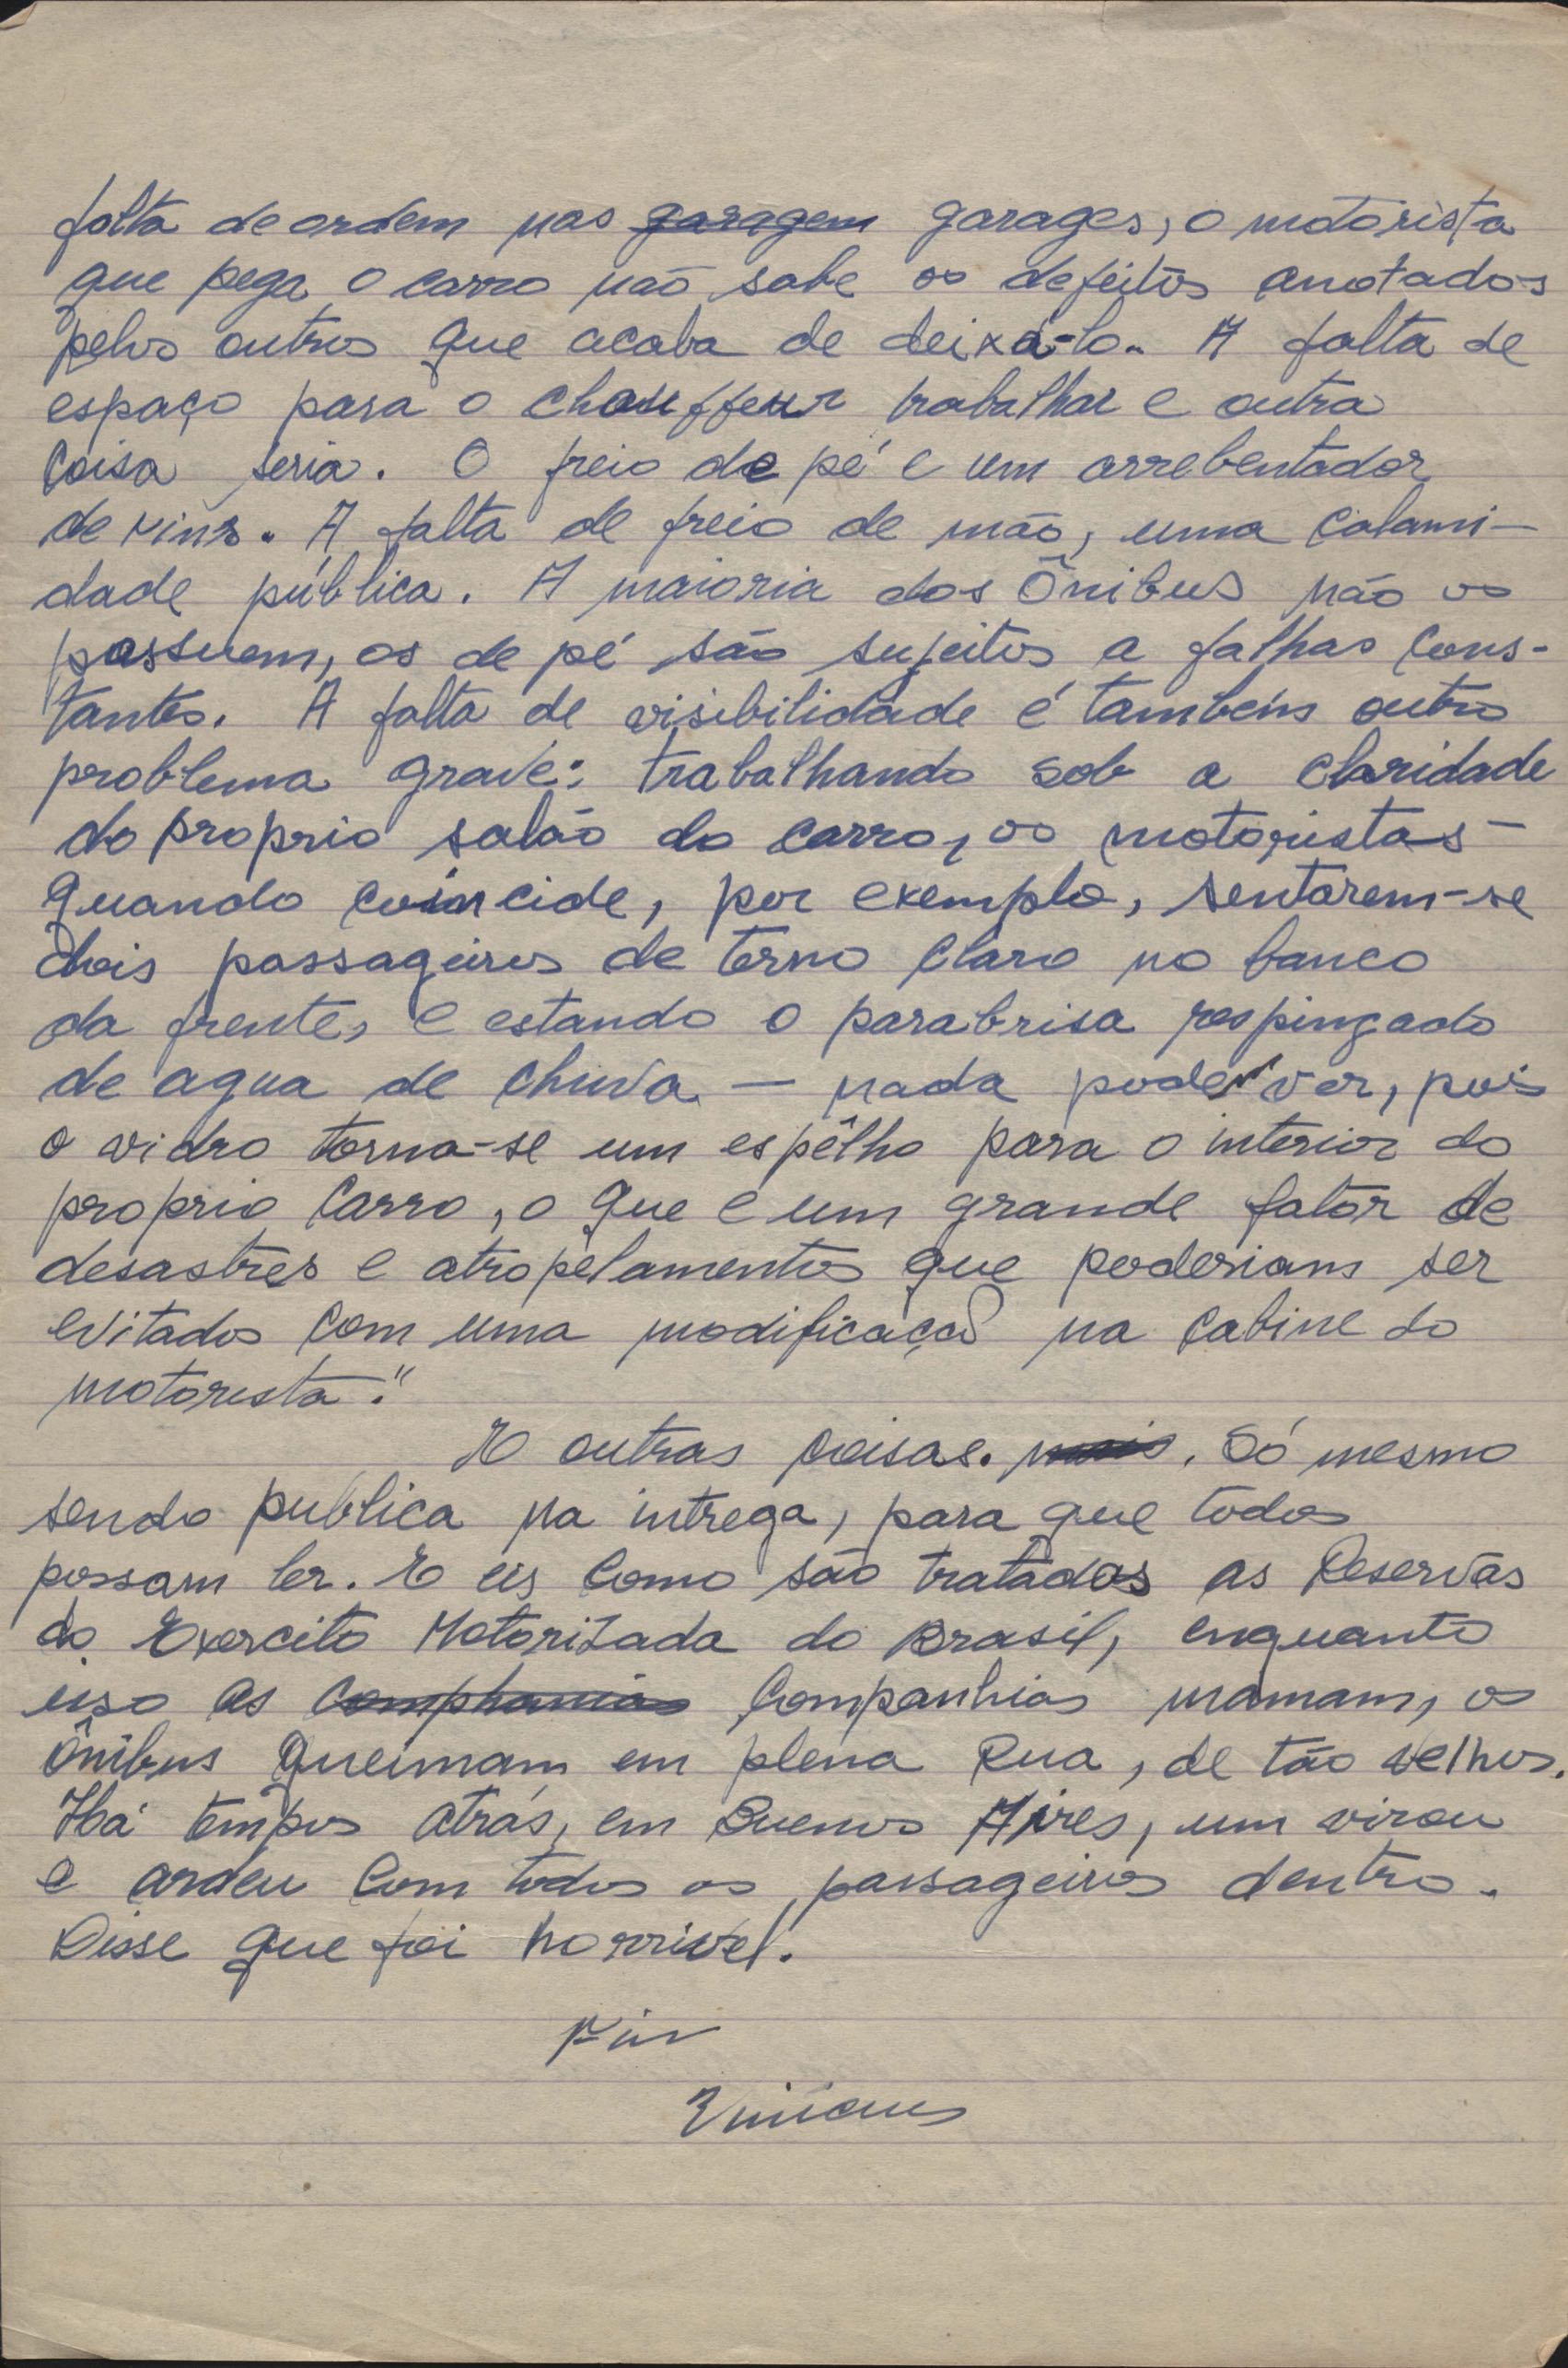 falta de ordem nas garagem garages, o motorista
que pega o carro não sabe os defeitos anotados
pelos outros que acaba de deixá-lo. A falta de
espaço para o chauffeur trabalhar e outra
coisa seria. O freio de pé e um arrebentador
de rins. A falta de freio de mão, uma calami-
dade pública. A maioria dos Ônibus não os
possuem, os de pé são sujeitos a falhas cons-
tantes. A falta de visibilidade é também outro
problema grave: trabalhando sob a claridade
do proprio salão do carro, os motoristas -
quando coincide, por exemplo, sentarem-se
dois passageiros de terno claro no banco
da frente, e estando o parabrisa respingado
de agua de chuva - nada podem ver, pois
o vidro torna-se um espêlho para o interior do
proprio carro, o que e um grande fator de
desastres e atropelamentos que poderiam ser
evitados com uma modificação na cabine do
motorista."
E outras coisas. mais. Só mesmo
sendo publica na intrega, para que todos
possam ler. E eis como são tratados as Reservas
do Exercito Motorizada do Brasil, enquanto
isso as comphanias Companhias mamam, os
ônibus queimam em plena Rua, de tão velhos.
Há tempos atrás, em Buenos Aires, um virou
e ardeu com todos os passageiros dentro.
Disse que foi horrivel.
Fim
Vinicius